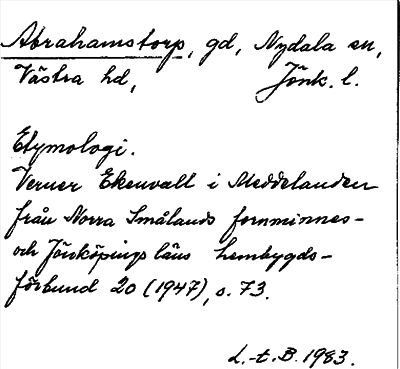 Abrahamstorp, gd, Nydala sn,
Västra hd, Jönk. l.
Etymologi.
Verner Ekenvall i Meddelanden
från Norra Smålands fornminnes-
och Jönköpings läns hembygds-
förbund 20 (1947), s. 73.
L.-t. B. 1983.